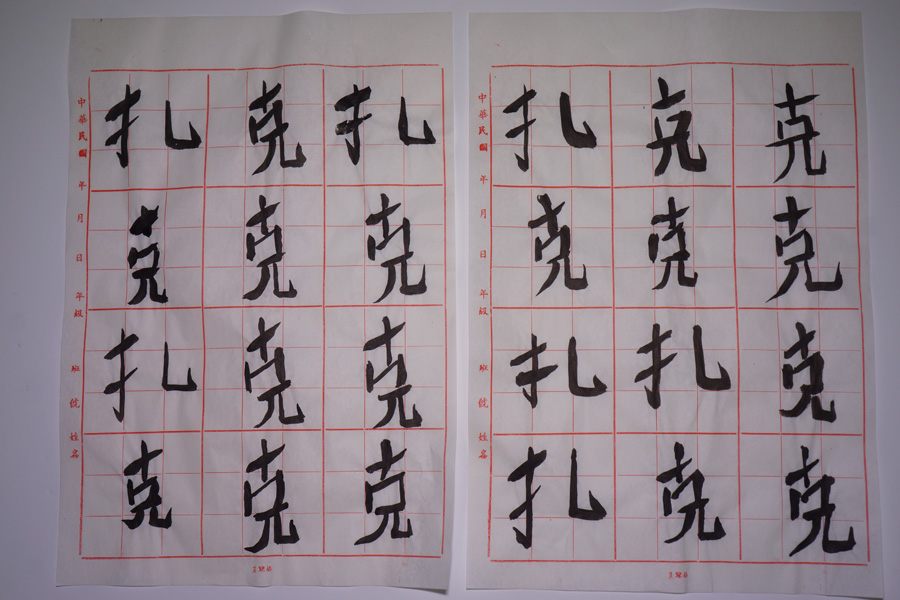 扎 克 扎
克 克 克
扎 克 克
克 克 克
中華民國 年 月 日 年級 班 號 姓名
扎 克 克
克 克 克
扎 扎 克
扎 克 克
中華民國 年 月 日 年級 班 號 姓名